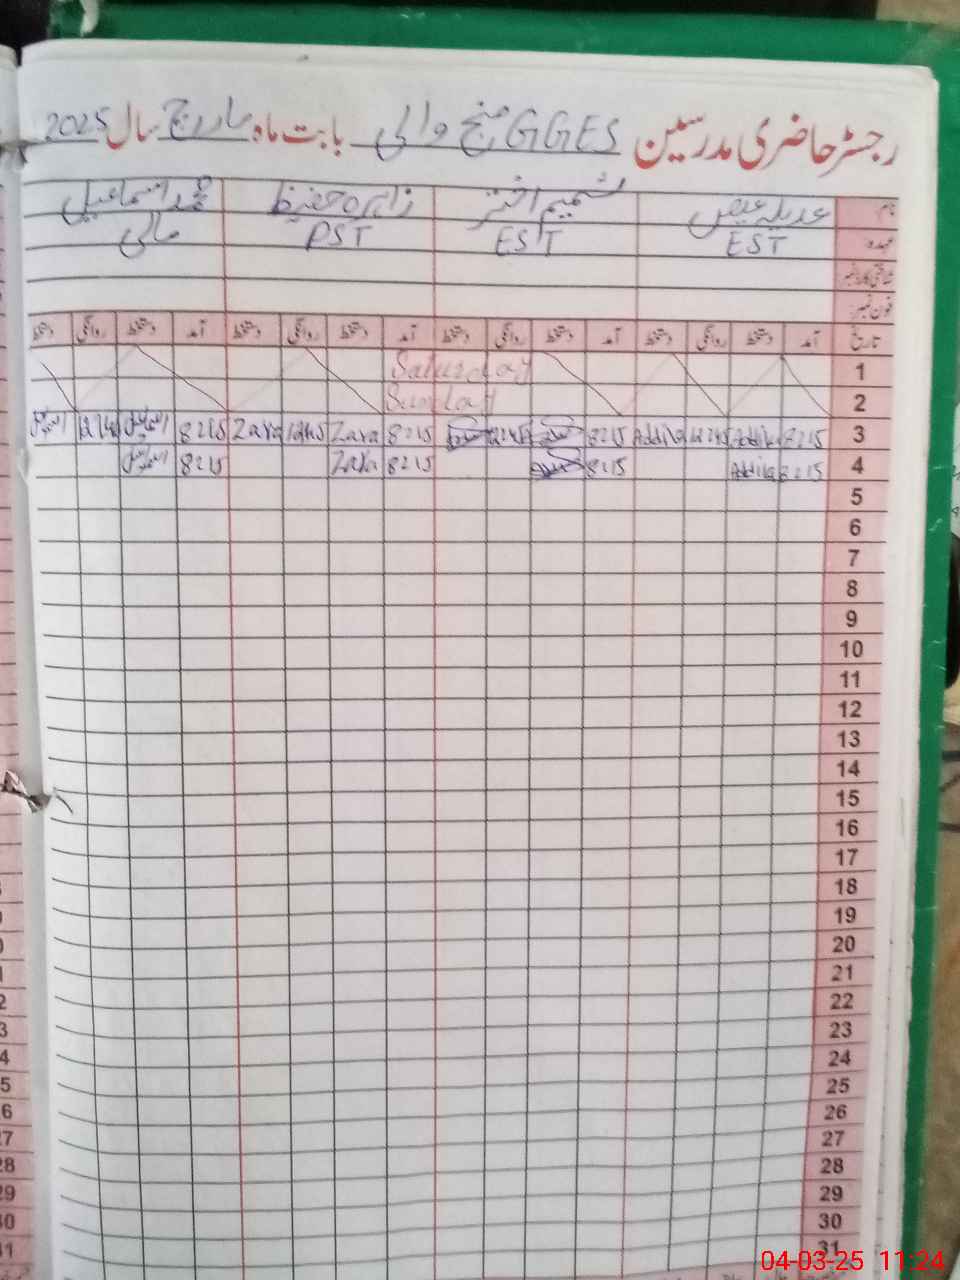 رجسٹر حاضری مدرسین GGES منج والی بابت ماہ مارچ سال 2025
نام عدیلہ شمیم اختر زاہرہ حفیظ محمد اسماعیل
عہدہ EST EST PST مالی
شناختی کارڈ نمبر
فون نمبر
تاریخ آمد دستخط روانگی دستخط آمد دستخط روانگی دستخط آمد دستخط روانگی دستخط آمد دستخط روانگی دستخط
1 Saturday
2 Sunday
3 8:15 Addila 12:45 Addila 8:15 12:45 8:15 Zara 12:45 Zara 8:15 اسماعیل 12:45 اسماعیل
4 8:15 Addila 8:15 8:15 Zara 8:15 اسماعیل
5
6
7
8
9
10
11
12
13
14
15
16
17
18
19
20
21
22
23
24
25
26
27
28
29
30
31
04-03-25 11:24